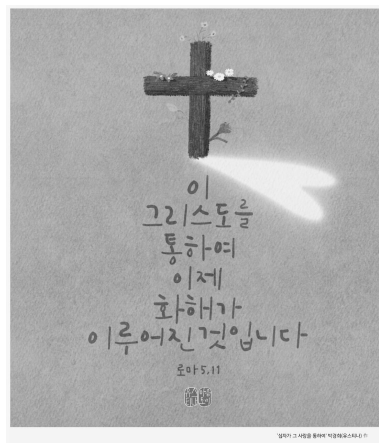 이
그리스도를
통하여
이제
화해가
이루어진 것입니다
로마 5,11
'십자가 그 사랑을 통하여' 박경희(유스티나)